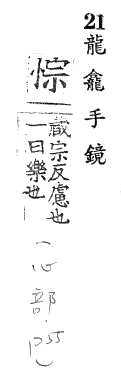 21龍龕手鏡
悰
藏宗反慮也
一曰樂也
(心部.P55)